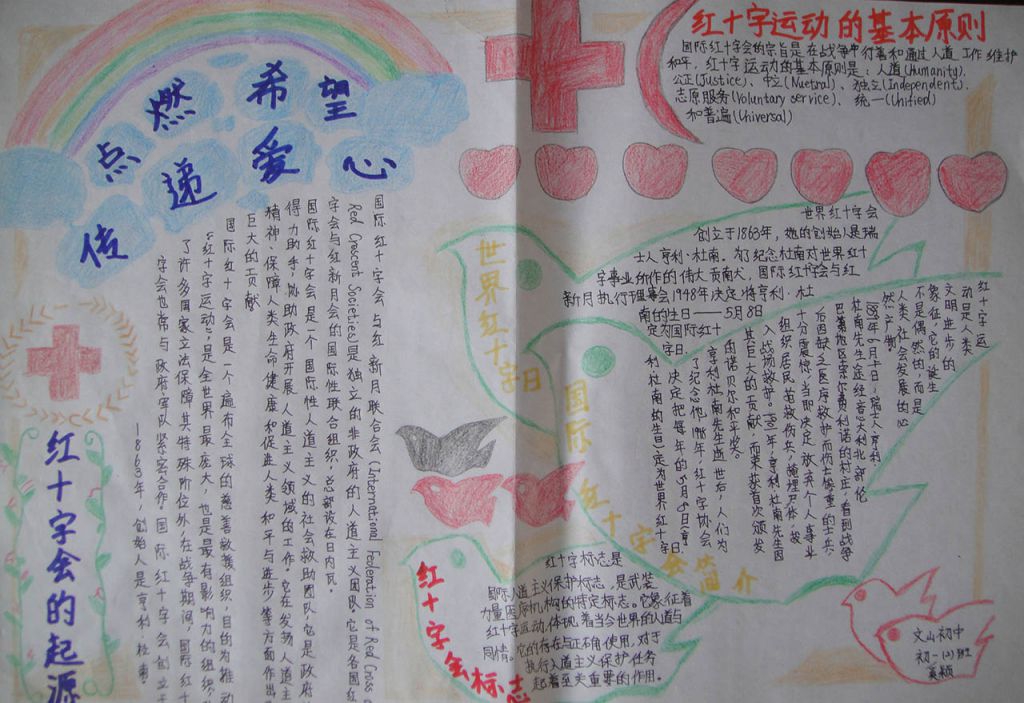 点燃希望
传递爱心
红十字会的起源
国际红十字会与红新月联合会(International Federation of Red Cross
Red Crescent Societies)是独立的非政府的人道主义团队,它是各国红
字会与红新月会的国际性联合组织,总部设在日内瓦。
国际红十字会是一个国际性人道主义的社会救助团队,它是政府
得力助手,协助政府开展人道主义领域的工作。它在发扬人道主
精神,保障人类生命健康和促进人类和平与进步等方面作出
巨大的贡献
国际红十字会是一个遍布全球的慈善救援组织,目的为推动
“红十字运动”,是全世界最庞大,也是最有影响力的组织,
了许多国家立法保障其特殊阶位外,在战争期间,国际红十
字会也常与政府军队紧密合作。国际红十字会创立于
1863年,创始人是亨利·杜南。
红十字运动的基本原则
国际红十字会的宗旨是在战争中行善和通过人道工作维护
和平,红十字运动的基本原则是:人道(Humanity)、
公正(Justice)、中立(Nuetral)、独立(Independent)、
志愿服务(Voluntary service)、统一(Unified)
和普遍(Universal)
世界红十字日
世界红十字会
创立于1863年,她的创始人是瑞
士人亨利·杜南。为了纪念杜南对世界红十
字事业所作的伟大贡南大,国际红十字会与红
新月执行理事会1948年决定将亨利·杜
南的生日——5月8日
定为国际红十
字日。
国际红十字会简介
红十字运
动是人类
文明进步的
象征,它的诞生
不是偶然的,而是
人类社会发展的必
然产物。
1859年6月24日,瑞士人亨利·
杜南先生途经意大利北部伦
巴第地区索尔费利诺的村庄,看到战争
后因缺乏医疗救护而伤势惨重的士兵,
十分震惊,当即决定放弃个人事业
组织居民抢救伤兵,掩埋尸体,投
入战场救护。1901年,亨利杜南先生因
其巨大的贡献,而荣获首次颁发
的诺贝尔和平奖。
亨利杜南先生逝世后,人们为
了纪念他,1948年,红十字协会
决定把每年的5月8日,亨
利杜南的生日,定为世界红十字日。
红十字会标志
红十字标志是
国际人道主义保护标志,是武装
力量医疗机构的特定标志。它象征着
红十字运动,体现着当今世界的人道与
同情。它的存在与正确使用,对于
执行人道主义保护任务
起着至关重要的作用。
文山初中
初一(2)班